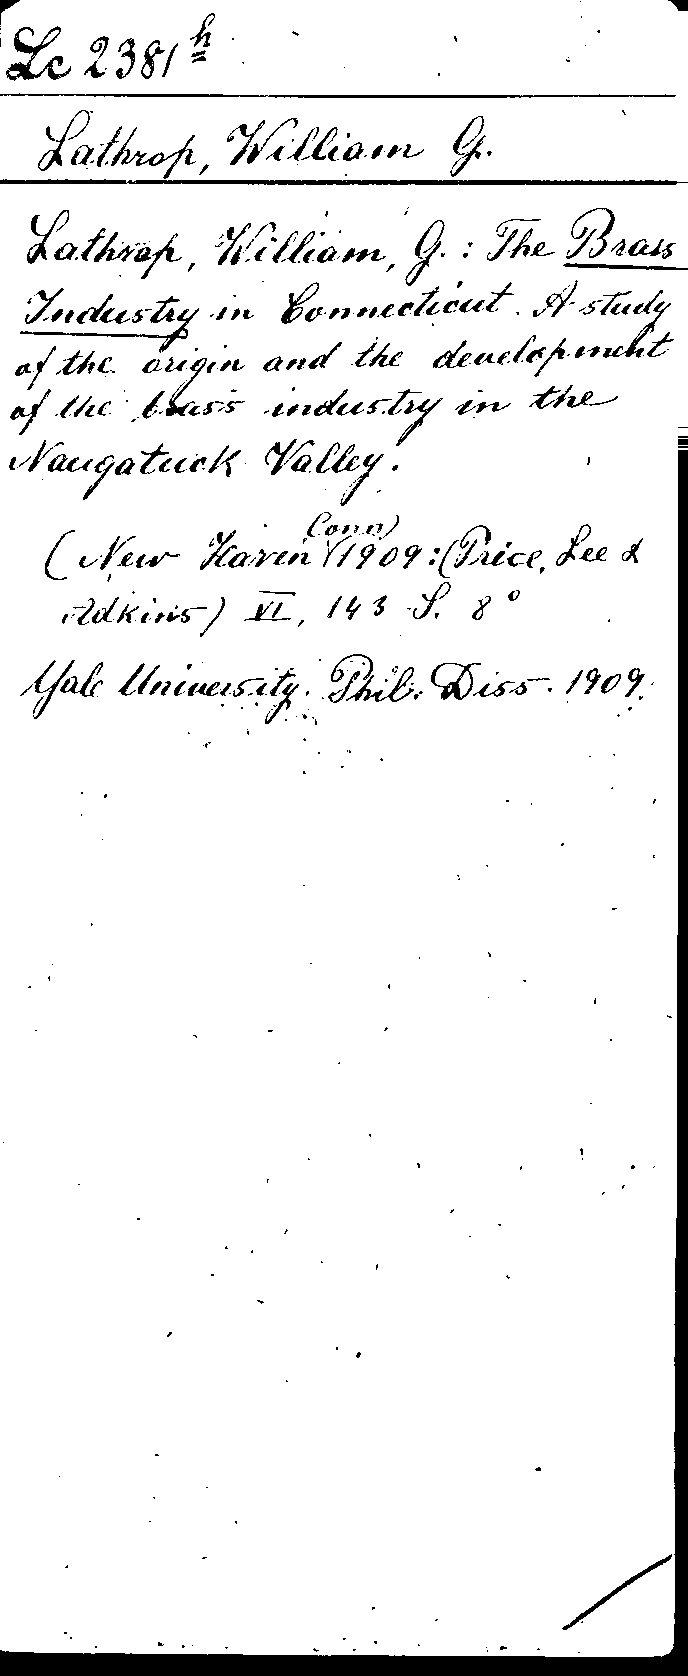 Lc 2381 h
Lathrop, William G.
Lathrop, William, G.: The Brass
Industry in Connecticut. A study
of the origin and the development
of the brass industry in the
Naugatuck Valley.
(Conn)
(New Haven 1909: (Price, Lee &
Adkins) VI, 143 S. 8°
Yale University. Phil. Diss. 1909.